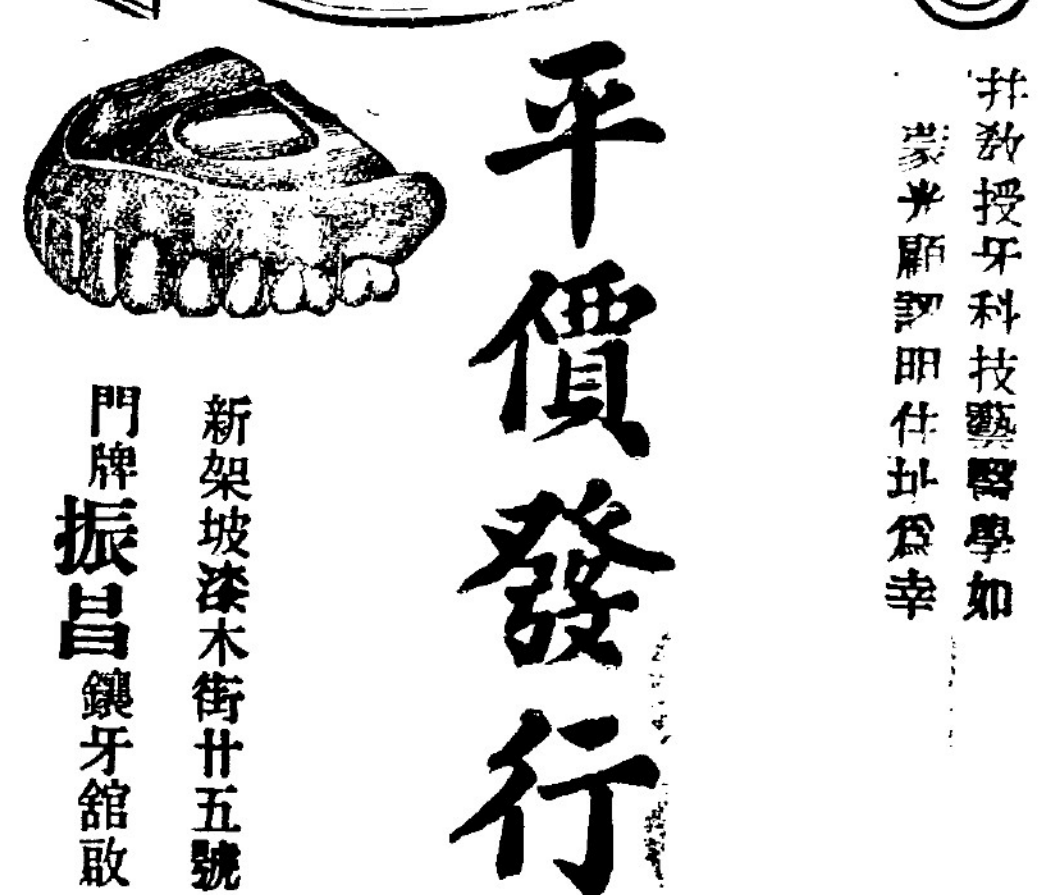 并教授牙科技藝醫學如
蒙光顧認明住址爲幸
平價發行
新架坡漆木街廿五號
門牌振昌鑲牙舘啟